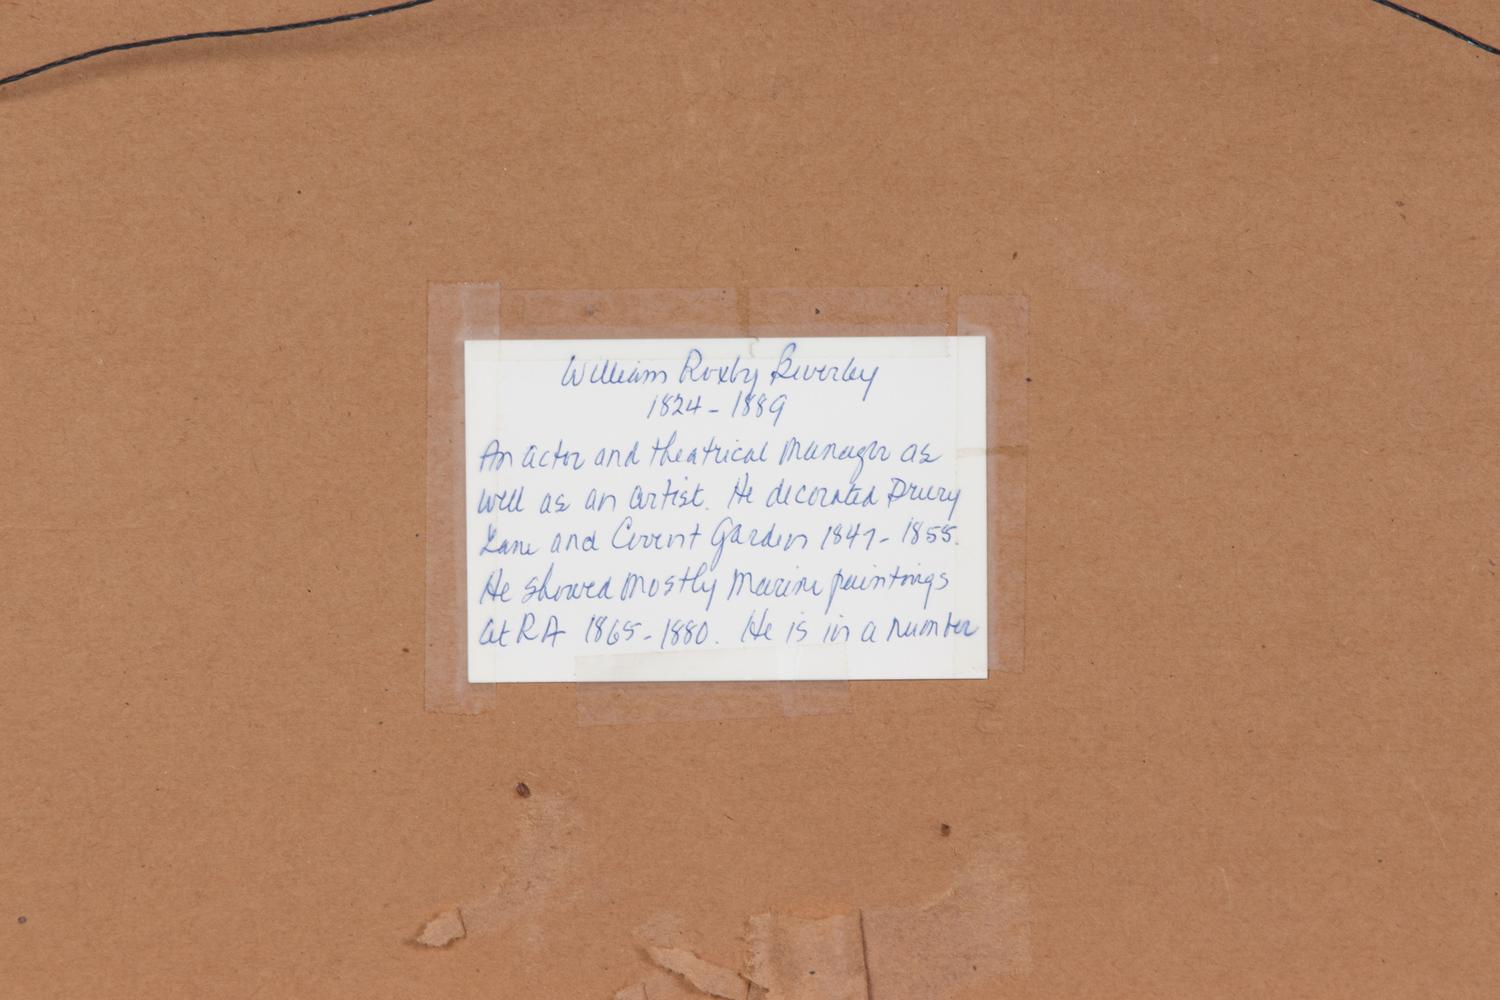 William Roxby Beverley
1824 - 1889
An actor and theatrical manager as
well as an artist. He decorated Drury
Lane and Covent Garden 1847 - 1855.
He showed mostly marine paintings
at RA 1865 - 1880. He is in a number